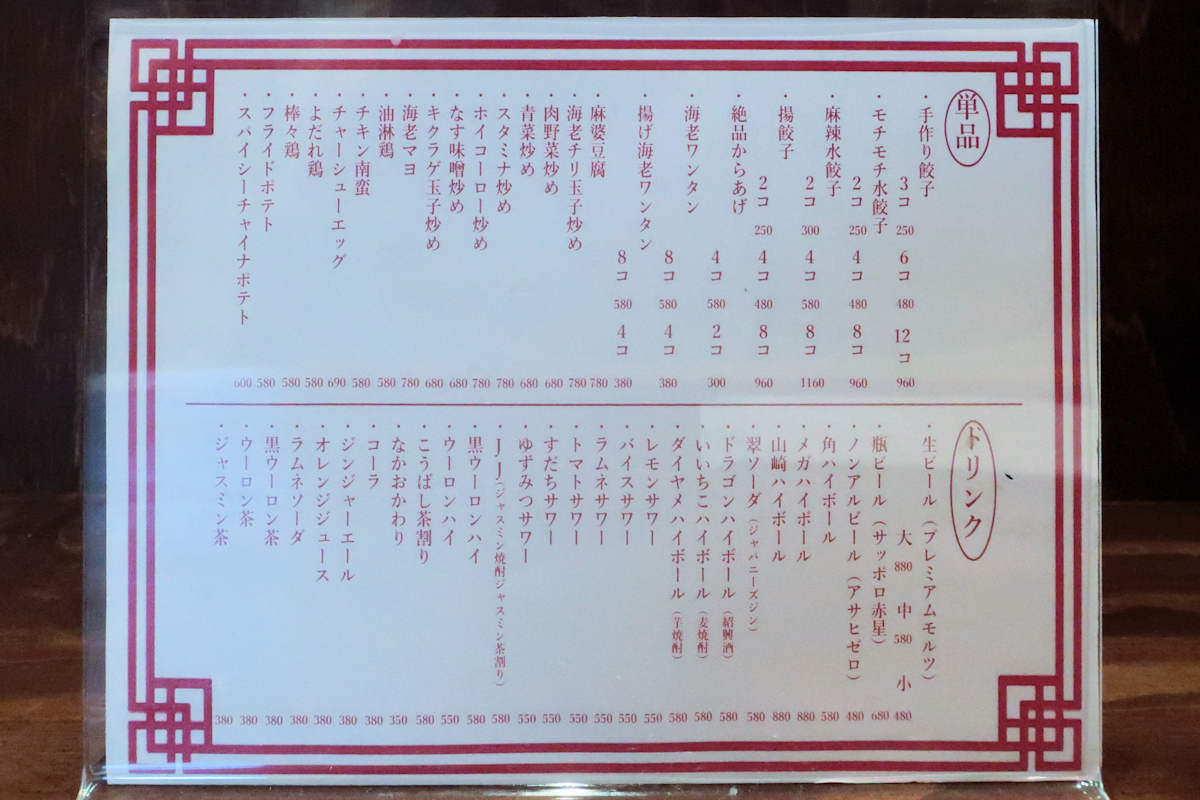 単品
・手作り餃子
3コ 250 6コ 480 12コ 960
・モチモチ水餃子
2コ 250 4コ 480 8コ 960
・麻辣水餃子
2コ 300 4コ 580 8コ 1160
・揚餃子
2コ 250 4コ 480 8コ 960
・絶品からあげ
4コ 580 2コ 300
・海老ワンタン
8コ 580 4コ 380
・揚げ海老ワンタン
8コ 580 4コ 380
・麻婆豆腐 780
・海老チリ玉子炒め 780
・肉野菜炒め 680
・青菜炒め 680
・スタミナ炒め 780
・ホイコーロー炒め 780
・なす味噌炒め 680
・キクラゲ玉子炒め 680
・海老マヨ 780
・油淋鶏 580
・チキン南蛮 580
・チャーシューエッグ 690
・よだれ鶏 580
・棒々鶏 580
・フライドポテト 580
・スパイシーチャイナポテト 600
ドリンク
・生ビール（プレミアムモルツ）
大 880 中 580 小 480
・瓶ビール（サッポロ赤星） 680
・ノンアルビール（アサヒゼロ） 480
・角ハイボール 580
・メガハイボール 880
・山崎ハイボール 880
・翠ソーダ（ジャパニーズジン） 580
・ドラゴンハイボール（紹興酒） 580
・いいちこハイボール（麦焼酎） 580
・ダイヤメハイボール（芋焼酎） 580
・レモンサワー 550
・バイスサワー 550
・ラムネサワー 550
・トマトサワー 550
・すだちサワー 550
・ゆずみつサワー 550
・JJ（ジャスミン焼酎ジャスミン茶割り） 580
・黒ウーロンハイ 580
・ウーロンハイ 550
・こうばし茶割り 580
・なかおかわり 350
・コーラ 380
・ジンジャーエール 380
・オレンジジュース 380
・ラムネソーダ 380
・黒ウーロン茶 380
・ウーロン茶 380
・ジャスミン茶 380